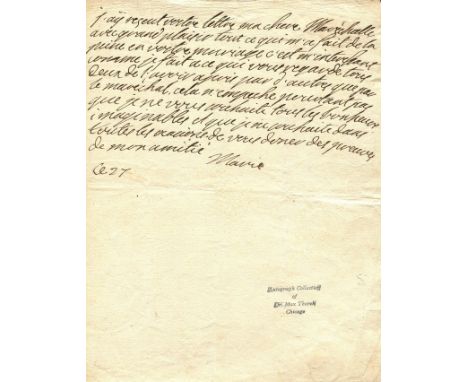 j'ay reçeut vostre lettre ma chere Maréchalle
avec grand plaisir tout ce qui m'a fait de la
peine en vostre mariage c'est m'interessant
comme je fait a ce qui vous regarde tous
deux de l'avoir apris par d'autres que par
le maréchal, cela n'empeche pourtant pas
que je ne vous souhaite tous les bonheurs
imaginables et que je ne souhaite dans
toutes les occasions de vous doner des preuves
de mon amitié
Marie
ce 27
Autograph Collection
of
Dr. Max Thorek
Chicago